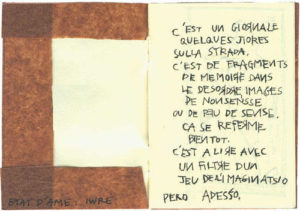 C'EST UN GIORNALE
QUELQUES JIORES
SULLA STRADA.
C'EST DE FRAGMENTS
DE MEMOIRE DANS
LE DESORDRE IMAGES
DE NONSENSSE
OU DE PEU DE SENSE.
CA SE REFERME
BIENTOT.
C'EST A LIRE AVEC
UN FILTRE D'UN
JEU DE L'IMAGINATSIO
PERO ADESSO.
ETAT D'AME: IVRE